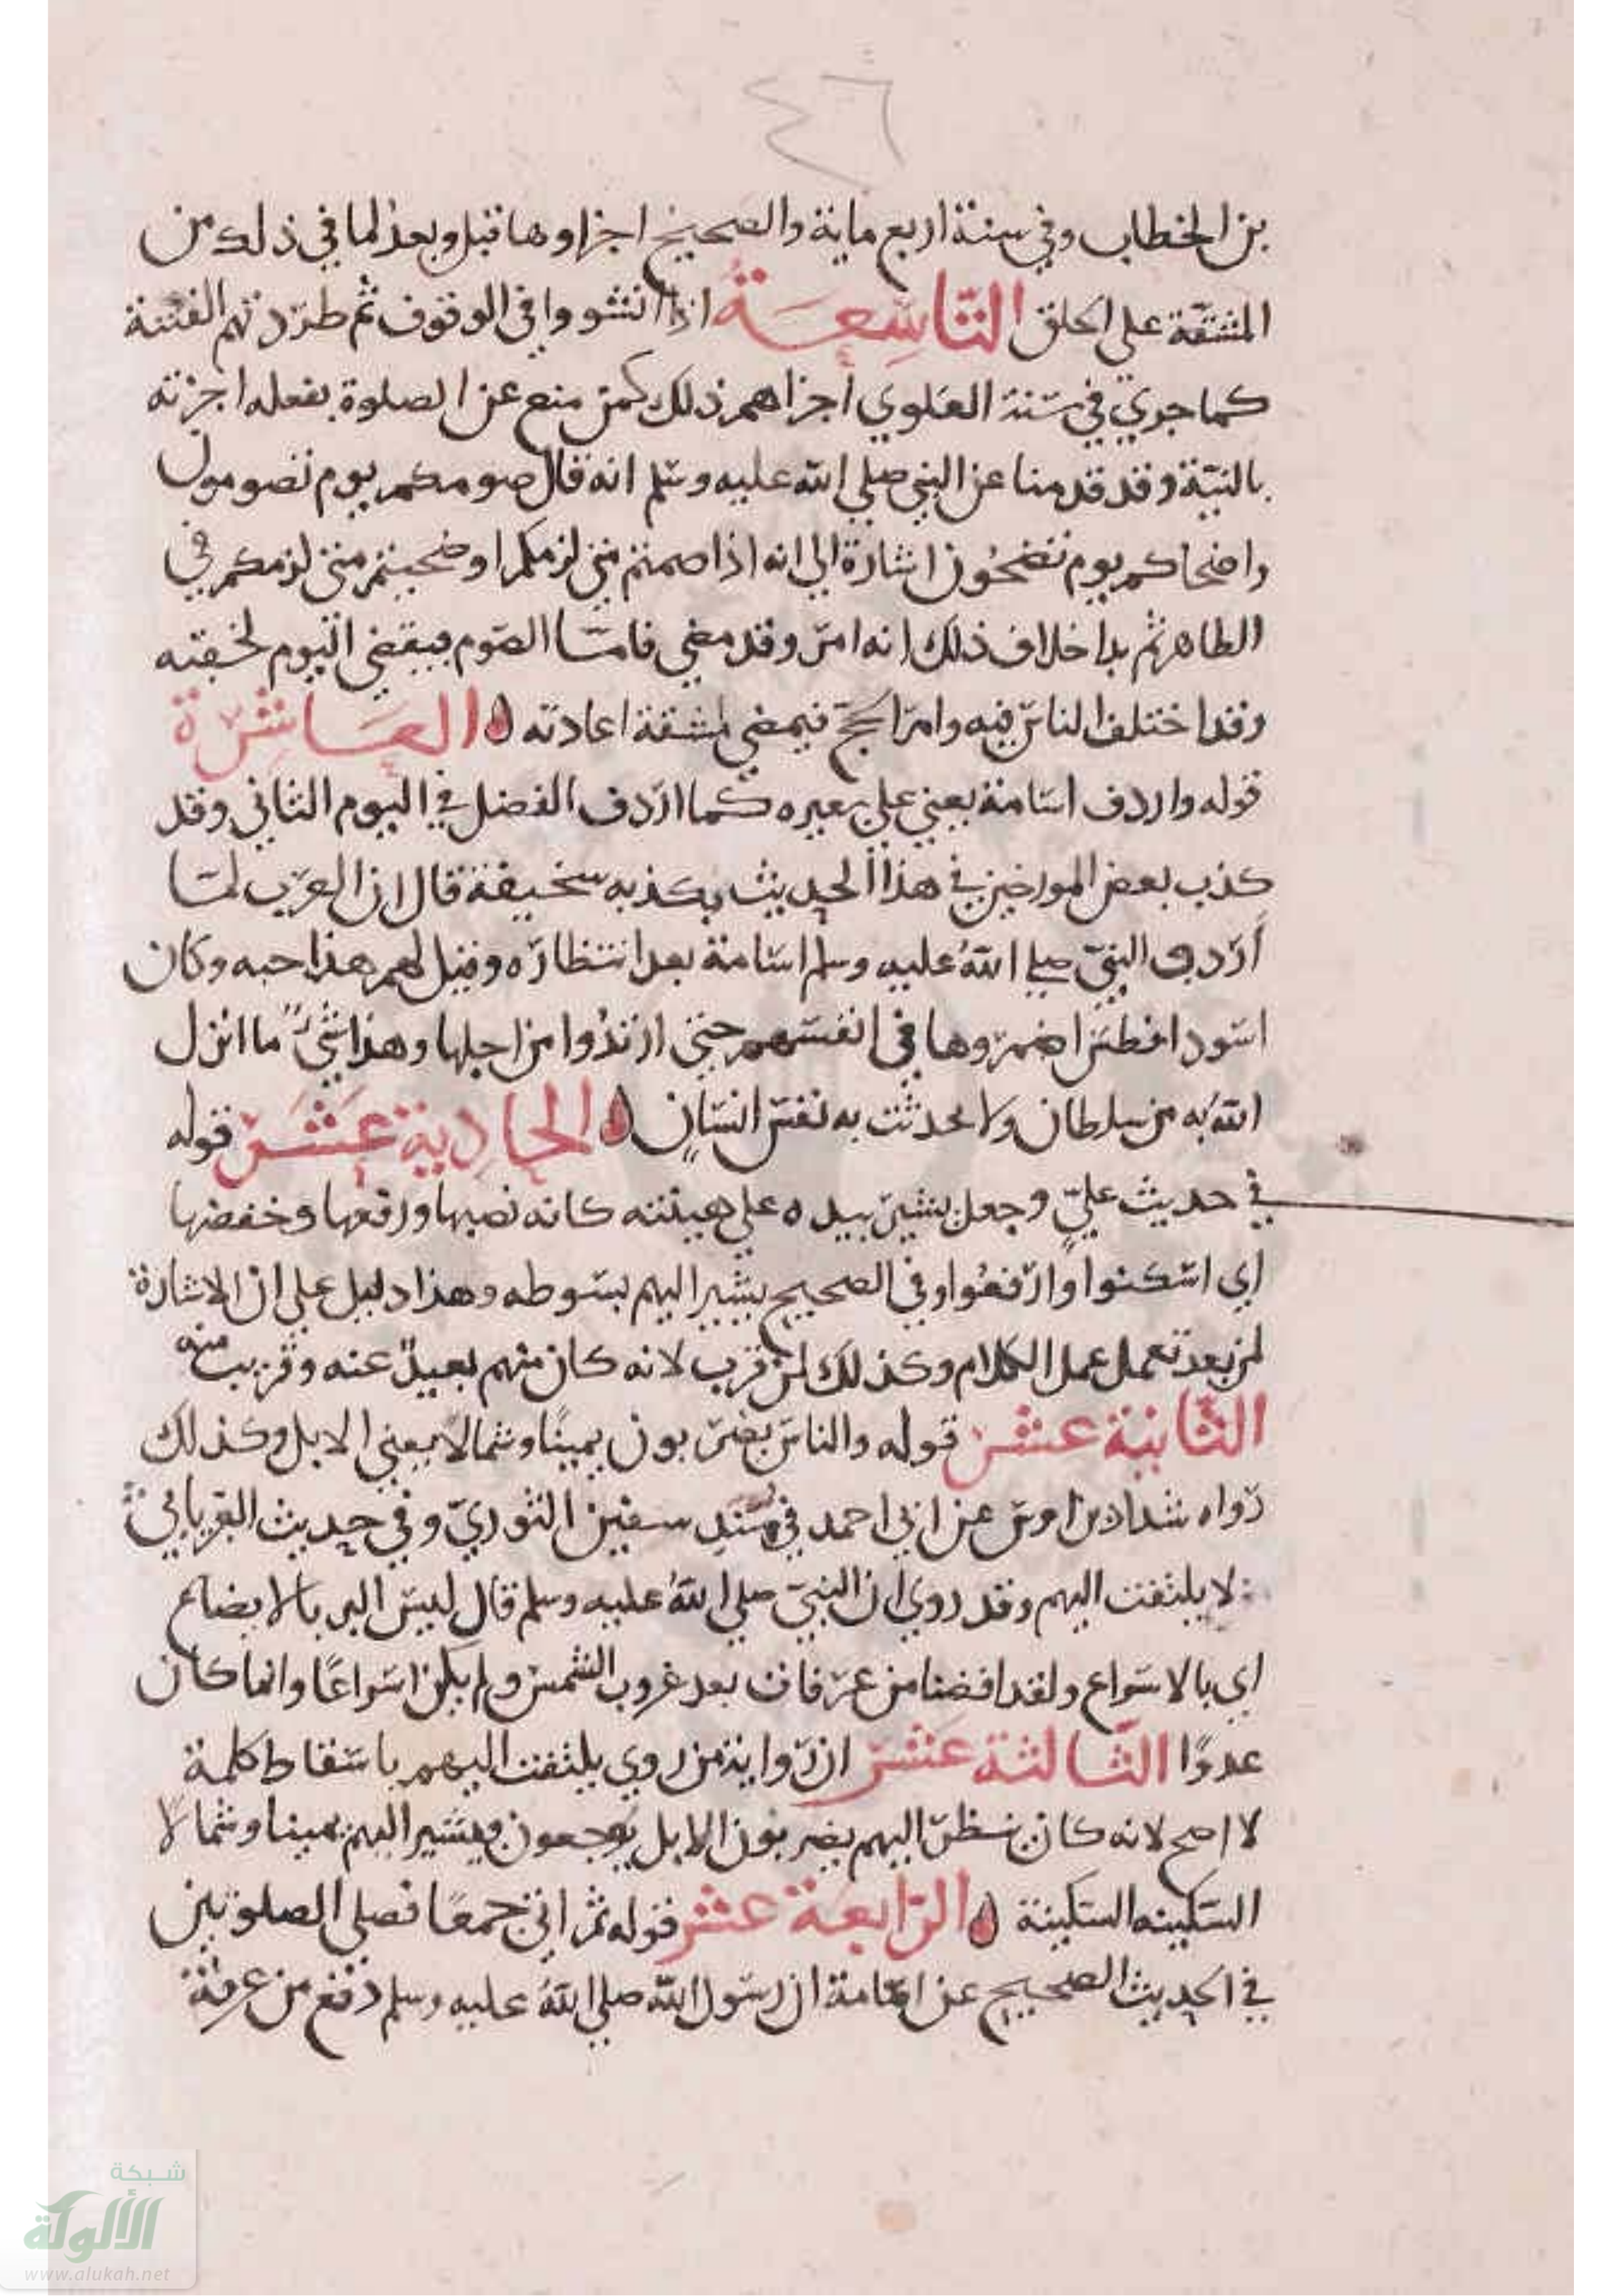 ٤٦
بن الخطاب وفي سنة اربع ماية والصحيح اجزاوها قبل وبعد لما في ذلك من
المشقة على الخلق التاسعة اذا انشووا في الوقوف ثم طردتهم الفتنة
كما جرى في سنة العلوي اجزاهم ذلك كمن منع عن الصلوة بفعله اجزته
بالنية وقد قدمنا عن النبي صلى الله عليه وسلم انه قال صومكم يوم تصومون
واضحاكم يوم تضحون اشارة الى انه اذا صمتم متى لزمكم او ضحيتم متى لزمكم في
الظاهر ثم بدا خلاف ذلك انه امر وقد مضى فامّا الصوم فيقضى اليوم لخفته
وقد اختلف الناس فيه وامر الحج فيمضي لمشقة اعادته العاشرة
قوله واردف اسامة يعني على بعيره كما اردف الفضل في اليوم الثاني وقد
كذب بعض المورخين في هذا الحديث بكذبه سخيفة قال ان العرب لمّا
أردف النبيّ صلى الله عليه وسلم اسامة بعد انتظاره وقيل لهم هذا حبه وكان
اسود افطس اضمروها في انفسهم حتى ارتدوا من اجلها وهذا شيءٌ ما انزل
الله به من سلطان ولا تحدثت به نفس انسان الحادية عشر قوله
في حديث عليّ وجعل يشير بيده على هينته كانه نصبها ورفعها وخفضها
اي اسكنوا وارفعوا وفي الصحيح يشير اليهم بسوطه وهذا دليل على ان الاشارة
لمن بعد تعمل عمل الكلام وكذلك لمن قرب لانه كان منهم بعيدٌ عنه وقريب منه
الثانية عشر قوله والناس يضربون يمينًا وشمالًا يعني الابل وكذلك
رواه شداد بن اوس عن ابي احمد في مسند سفين الثوريّ وفي حديث الفريابي
لا يلتفت اليهم وقد روي ان النبيّ صلى الله عليه وسلم قال ليس البر بالايضاع
اي بالاسراع ولقد افضنا من عرفات بعد غروب الشمس ولم يكن اسراعًا وانما كان
عدوًا الثالثة عشر ان رواية من روى يلتفت اليهم باسقاط كلمة
لا اصح لانه كان ينظر اليهم يضربون الابل يوجعون ويشير اليهم يمينا وشمالا
السكينه السكينة الرابعة عشر قوله ثم اتى جمعًا فصلى الصلوتين
في الحديث الصحيح عن اسامة ان رسول الله صلى الله عليه وسلم دفع من عرفة
شبكة
الألوكة
www.alukah.net